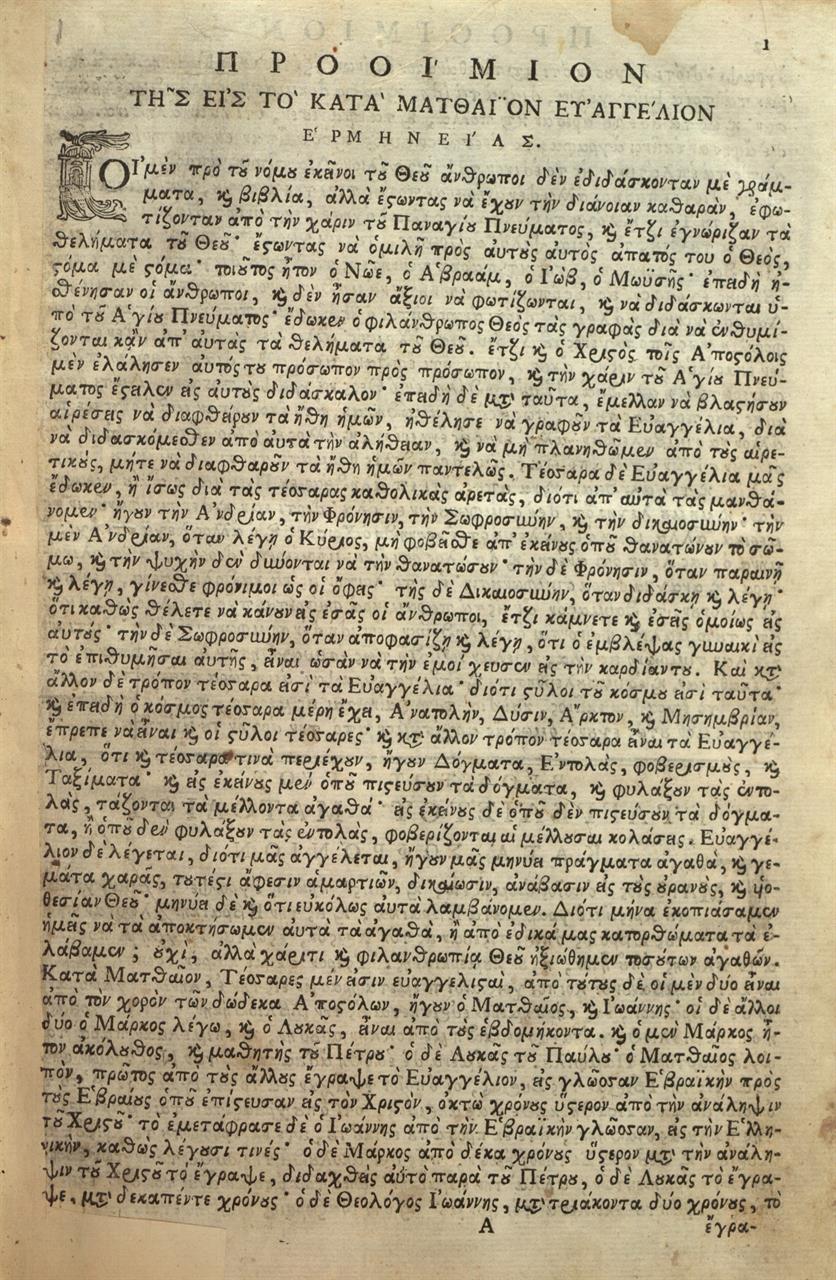 1
ΠΡΟΟΙ´ΜΙΟΝ
ΤΗ῀Σ ΕΙ᾿Σ ΤΟ` ΚΑΤΑ` ΜΑΤΘΑΙ῀ΟΝ ΕΥ᾿ΑΓΓΕ´ΛΙΟΝ
Ε῾ΡΜΗΝΕΙ´ΑΣ.
ΟΙ῾ μὲν πρὸ τοῦ νόμου ἐκεῖνοι τοῦ Θεοῦ ἄνθρωποι δὲν ἐδιδάσκονταν μὲ γράμ-
ματα, καὶ βιβλία, ἀλλὰ ἔστωντας νὰ ἔχουν τὴν διάνοιαν καθαρὰν, ἐφω-
τίζονταν ἀπὸ τὴν χάριν τοῦ Παναγίου Πνεύματος, καὶ ἔτζι ἐγνώριζαν τὰ
θελήματα τοῦ Θεοῦ· ἔστωντας νὰ ὁμιλῇ πρὸς αὐτοὺς αὐτὸς ἀπατός του ὁ Θεὸς,
στόμα μὲ στόμα· τοιοῦτος ἦτον ὁ Νῶε, ὁ Ἀβραὰμ, ὁ Ἰὼβ, ὁ Μωϋσῆς· ἐπειδὴ ἠ-
θένησαν οἱ ἄνθρωποι, καὶ δὲν ἦσαν ἄξιοι νὰ φωτίζωνται, καὶ νὰ διδάσκωνται ὑ-
πὸ τοῦ Ἁγίου Πνεύματος· ἔδωκεν ὁ φιλάνθρωπος Θεὸς τὰς γραφὰς διὰ νὰ ἐνθυμί-
ζονται κᾂν ἀπ' αὐτὰς τὰ θελήματα τοῦ Θεοῦ. ἔτζι καὶ ὁ Χριστὸς τοῖς Ἀποστόλοις
μὲν ἐλάλησεν αὐτός του πρόσωπον πρὸς πρόσωπον, καὶ τὴν χάριν τοῦ Ἁγίου Πνεύ-
ματος ἔστειλεν εἰς αὐτοὺς διδάσκαλον· ἐπειδὴ δὲ μετὰ ταῦτα, ἔμελλαν νὰ βλαστήσουν
αἱρέσεις νὰ διαφθείρουν τὰ ἤθη ἡμῶν, ἠθέλησε νὰ γραφοῦν τὰ Εὐαγγέλια, διὰ
νὰ διδασκόμεσθεν ἀπὸ αὐτὰ τὴν ἀλήθειαν, καὶ νὰ μὴ πλανηθῶμεν ἀπὸ τοὺς αἱρε-
τικοὺς, μήτε νὰ διαφθαροῦν τὰ ἤθη ἡμῶν παντελῶς. Τέσσαρα δὲ Εὐαγγέλια μᾶς
ἔδωκεν, ἢ ἴσως διὰ τὰς τέσσαρας καθολικὰς ἀρετὰς, διότι ἀπ' αὐτὰ τὰς μανθά-
νομεν· ἤγουν τὴν Ἀνδρίαν, τὴν Φρόνησιν, τὴν Σωφροσύνην, καὶ τὴν δικαιοσύνην· τὴν
μὲν Ἀνδρίαν, ὅταν λέγῃ ὁ Κύριος, μὴ φοβεῖσθε ἀπ' ἐκείνους ὁποῦ θανατώνουν τὸ σῶ-
μα, καὶ τὴν ψυχὴν δὲν δύνονται νὰ τὴν θανατώσουν· τὴν δὲ Φρόνησιν, ὅταν παραινῇ
καὶ λέγῃ, γίνεσθε φρόνιμοι ὡς οἱ ὄφεις· τῆς δὲ Δικαιοσύνην, ὅταν διδάσκῃ καὶ λέγῃ·
ὅτι καθὼς θέλετε νὰ κάνουν εἰς ἐσᾶς οἱ ἄνθρωποι, ἔτζι κάμνετε καὶ ἐσεῖς ὁμοίως εἰς
αὐτούς· τὴν δὲ Σωφροσύνην, ὅταν ἀποφασίζῃ καὶ λέγῃ, ὅτι ὁ ἐμβλέψας γυναικὶ εἰς
τὸ ἐπιθυμῆσαι αὐτῆς, εἶναι ὡσὰν νὰ τὴν ἐμοίχευσεν εἰς τὴν καρδίαν του. Καὶ κατὰ
ἄλλον δὲ τρόπον τέσσαρα εἰσὶ τὰ Εὐαγγέλια· διότι στῦλοι τοῦ κόσμου εἰσὶ ταῦτα·
καὶ ἐπειδὴ ὁ κόσμος τέσσαρα μέρη ἔχει, Ἀνατολὴν, Δύσιν, Ἄρκτον, καὶ Μησημβρίαν,
ἔπρεπε νὰ εἶναι καὶ οἱ στῦλοι τέσσαρες· καὶ κατὰ ἄλλον τρόπον τέσσαρα εἶναι τὰ Εὐαγγέ-
λια, ὅτι καὶ τέσσαρα τινὰ περιέχουν, ἤγουν Δόγματα, Ἐντολὰς, φοβερισμοὺς, καὶ
Ταξίματα· καὶ εἰς ἐκείνους μὲν ὁποῦ πιστεύσουν τὰ δόγματα, καὶ φυλάξουν τὰς ἐντο-
λὰς, τάζονται τὰ μέλλοντα ἀγαθά· εἰς ἐκείνους δὲ ὁποῦ δὲν πιστεύσουν τὰ δόγμα-
τα, ἢ ὁποῦ δὲν φυλάξουν τὰς ἐντολὰς, φοβερίζονται αἱ μέλλουσαι κολάσεις. Εὐαγγέ-
λιον δὲ λέγεται, διότι μᾶς ἀγγέλεται, ἤγουν μᾶς μηνύει πράγματα ἀγαθὰ, καὶ γε-
μάτα χαρᾶς, τουτέστι ἄφεσιν ἁμαρτιῶν, δικαίωσιν, ἀνάβασιν εἰς τοὺς οὐρανοὺς, καὶ υἱο-
θεσίαν Θεοῦ· μηνύει δὲ καὶ ὅτι εὐκόλως αὐτὰ λαμβάνομεν. Διότι μήνα ἐκοπιάσαμεν
ἡμεῖς νὰ τὰ ἀποκτήσωμεν αὐτὰ τὰ ἀγαθὰ, ἢ ἀπὸ ἐδικά μας κατορθώματα τὰ ἐ-
λάβαμεν; οὐχὶ, ἀλλὰ χάριτι καὶ φιλανθρωπίᾳ Θεοῦ ἠξιώθημεν τοσούτων ἀγαθῶν.
Κατὰ Ματθαῖον, Τέσσαρες μέν εἰσιν εὐαγγελισταὶ, ἀπὸ τούτους δὲ οἱ μὲν δύο εἶναι
ἀπὸ τὸν χορὸν τῶν δώδεκα Ἀποστόλων, ἤγουν ὁ Ματθαῖος, καὶ Ἰωάννης· οἱ δὲ ἄλλοι
δύο ὁ Μάρκος λέγω, καὶ ὁ Λουκᾶς, εἶναι ἀπὸ τοὺς ἑβδομήκοντα. καὶ ὁ μὲν Μάρκος ἦ-
τον ἀκόλουθος, καὶ μαθητὴς τοῦ Πέτρου· ὁ δὲ Λουκᾶς τοῦ Παύλου· ὁ Ματθαῖος λοι-
πὸν, πρῶτος ἀπὸ τοὺς ἄλλους ἔγραψε τὸ Εὐαγγέλιον, εἰς γλῶσσαν Ἑβραϊκὴν πρὸς
τοὺς Ἑβραίους ὁποῦ ἐπίστευσαν εἰς τὸν Χριστὸν, ὀκτὼ χρόνους ὕστερον ἀπὸ τὴν ἀνάληψιν
τοῦ Χριστοῦ· τὸ ἐμετάφρασε δὲ ὁ Ἰωάννης ἀπὸ τὴν Ἑβραϊκὴν γλῶσσαν, εἰς τὴν Ἑλλη-
νικὴν, καθὼς λέγουσι τινές· ὁ δὲ Μάρκος ἀπὸ δέκα χρόνους ὕστερον μετὰ τὴν ἀνάλη-
ψιν τοῦ Χριστοῦ τὸ ἔγραψε, διδαχθεὶς αὐτὸ παρὰ τοῦ Πέτρου, ὁ δὲ Λουκᾶς τὸ ἔγρα-
ψε, μετὰ δεκαπέντε χρόνους· ὁ δὲ Θεολόγος Ἰωάννης, μετὰ τριάκοντα δύο χρόνους, τὸ
Α ἔγρα-